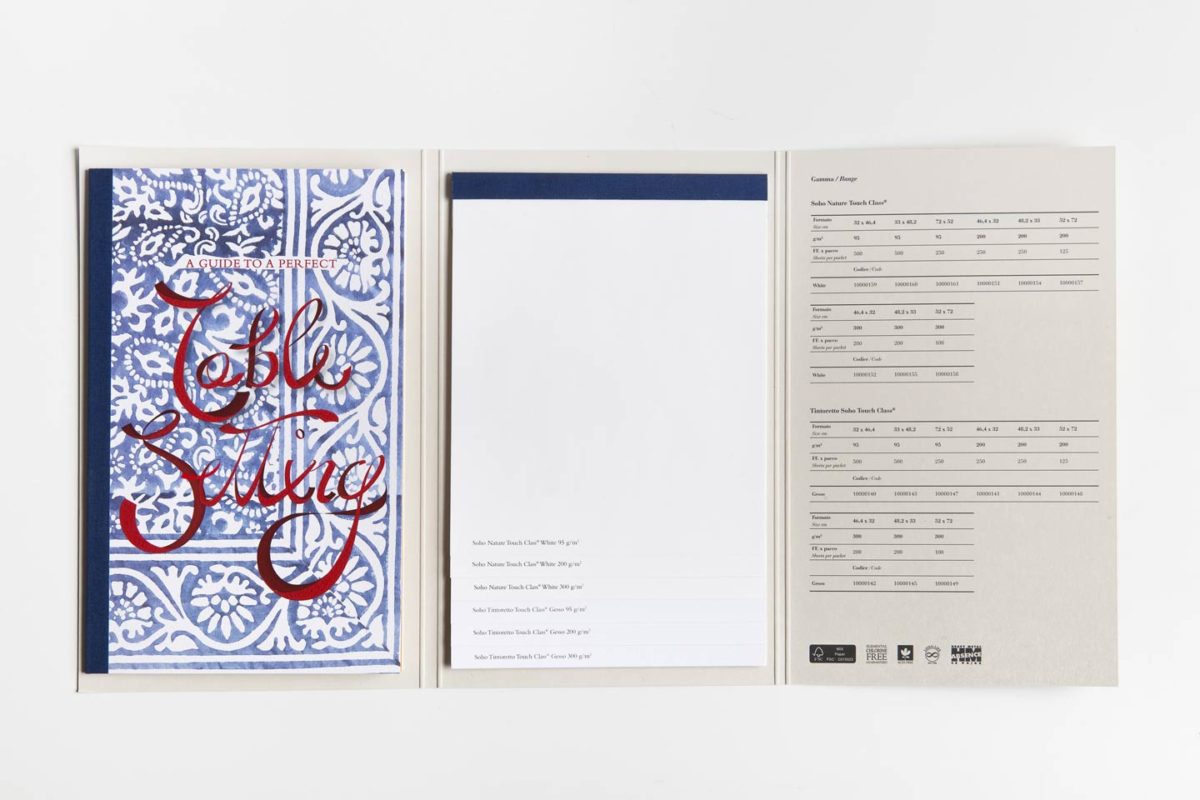 A GUIDE TO A PERFECT
Table
Setting
Soho Nature Touch Class® White 95 g/m²
Soho Nature Touch Class® White 200 g/m²
Soho Nature Touch Class® White 300 g/m²
Soho Tintoretto Touch Class® Gesso 95 g/m²
Soho Tintoretto Touch Class® Gesso 200 g/m²
Soho Tintoretto Touch Class® Gesso 300 g/m²
Gamma / Range
Soho Nature Touch Class®
Formato 32 x 46,4 33 x 48,2 72 x 52 46,4 x 32 48,2 x 33 52 x 72
Size cm
g/m² 95 95 95 200 200 200
FF. x pacco 500 500 250 250 250 125
Sheets per packet
Codice / Code
White 10000159 10000160 10000161 10000151 10000154 10000157
Formato 46,4 x 32 48,2 x 33 52 x 72
Size cm
g/m² 300 300 300
FF. x pacco 200 200 100
Sheets per packet
Codice / Code
White 10000152 10000155 10000158
Tintoretto Soho Touch Class®
Formato 32 x 46,4 33 x 48,2 72 x 52 46,4 x 32 48,2 x 33 52 x 72
Size cm
g/m² 95 95 95 200 200 200
FF. x pacco 500 500 250 250 250 125
Sheets per packet
Codice / Code
Gesso 10000140 10000143 10000147 10000141 10000144 10000148
Formato 46,4 x 32 48,2 x 33 52 x 72
Size cm
g/m² 300 300 300
FF. x pacco 200 200 100
Sheets per packet
Codice / Code
Gesso 10000142 10000145 10000149
FSC
MIX
Paper
ELEMENTAL
CHLORINE
FREE
GUARANTEED
ACID FREE
HEAVY METAL
HM
ABSENCE